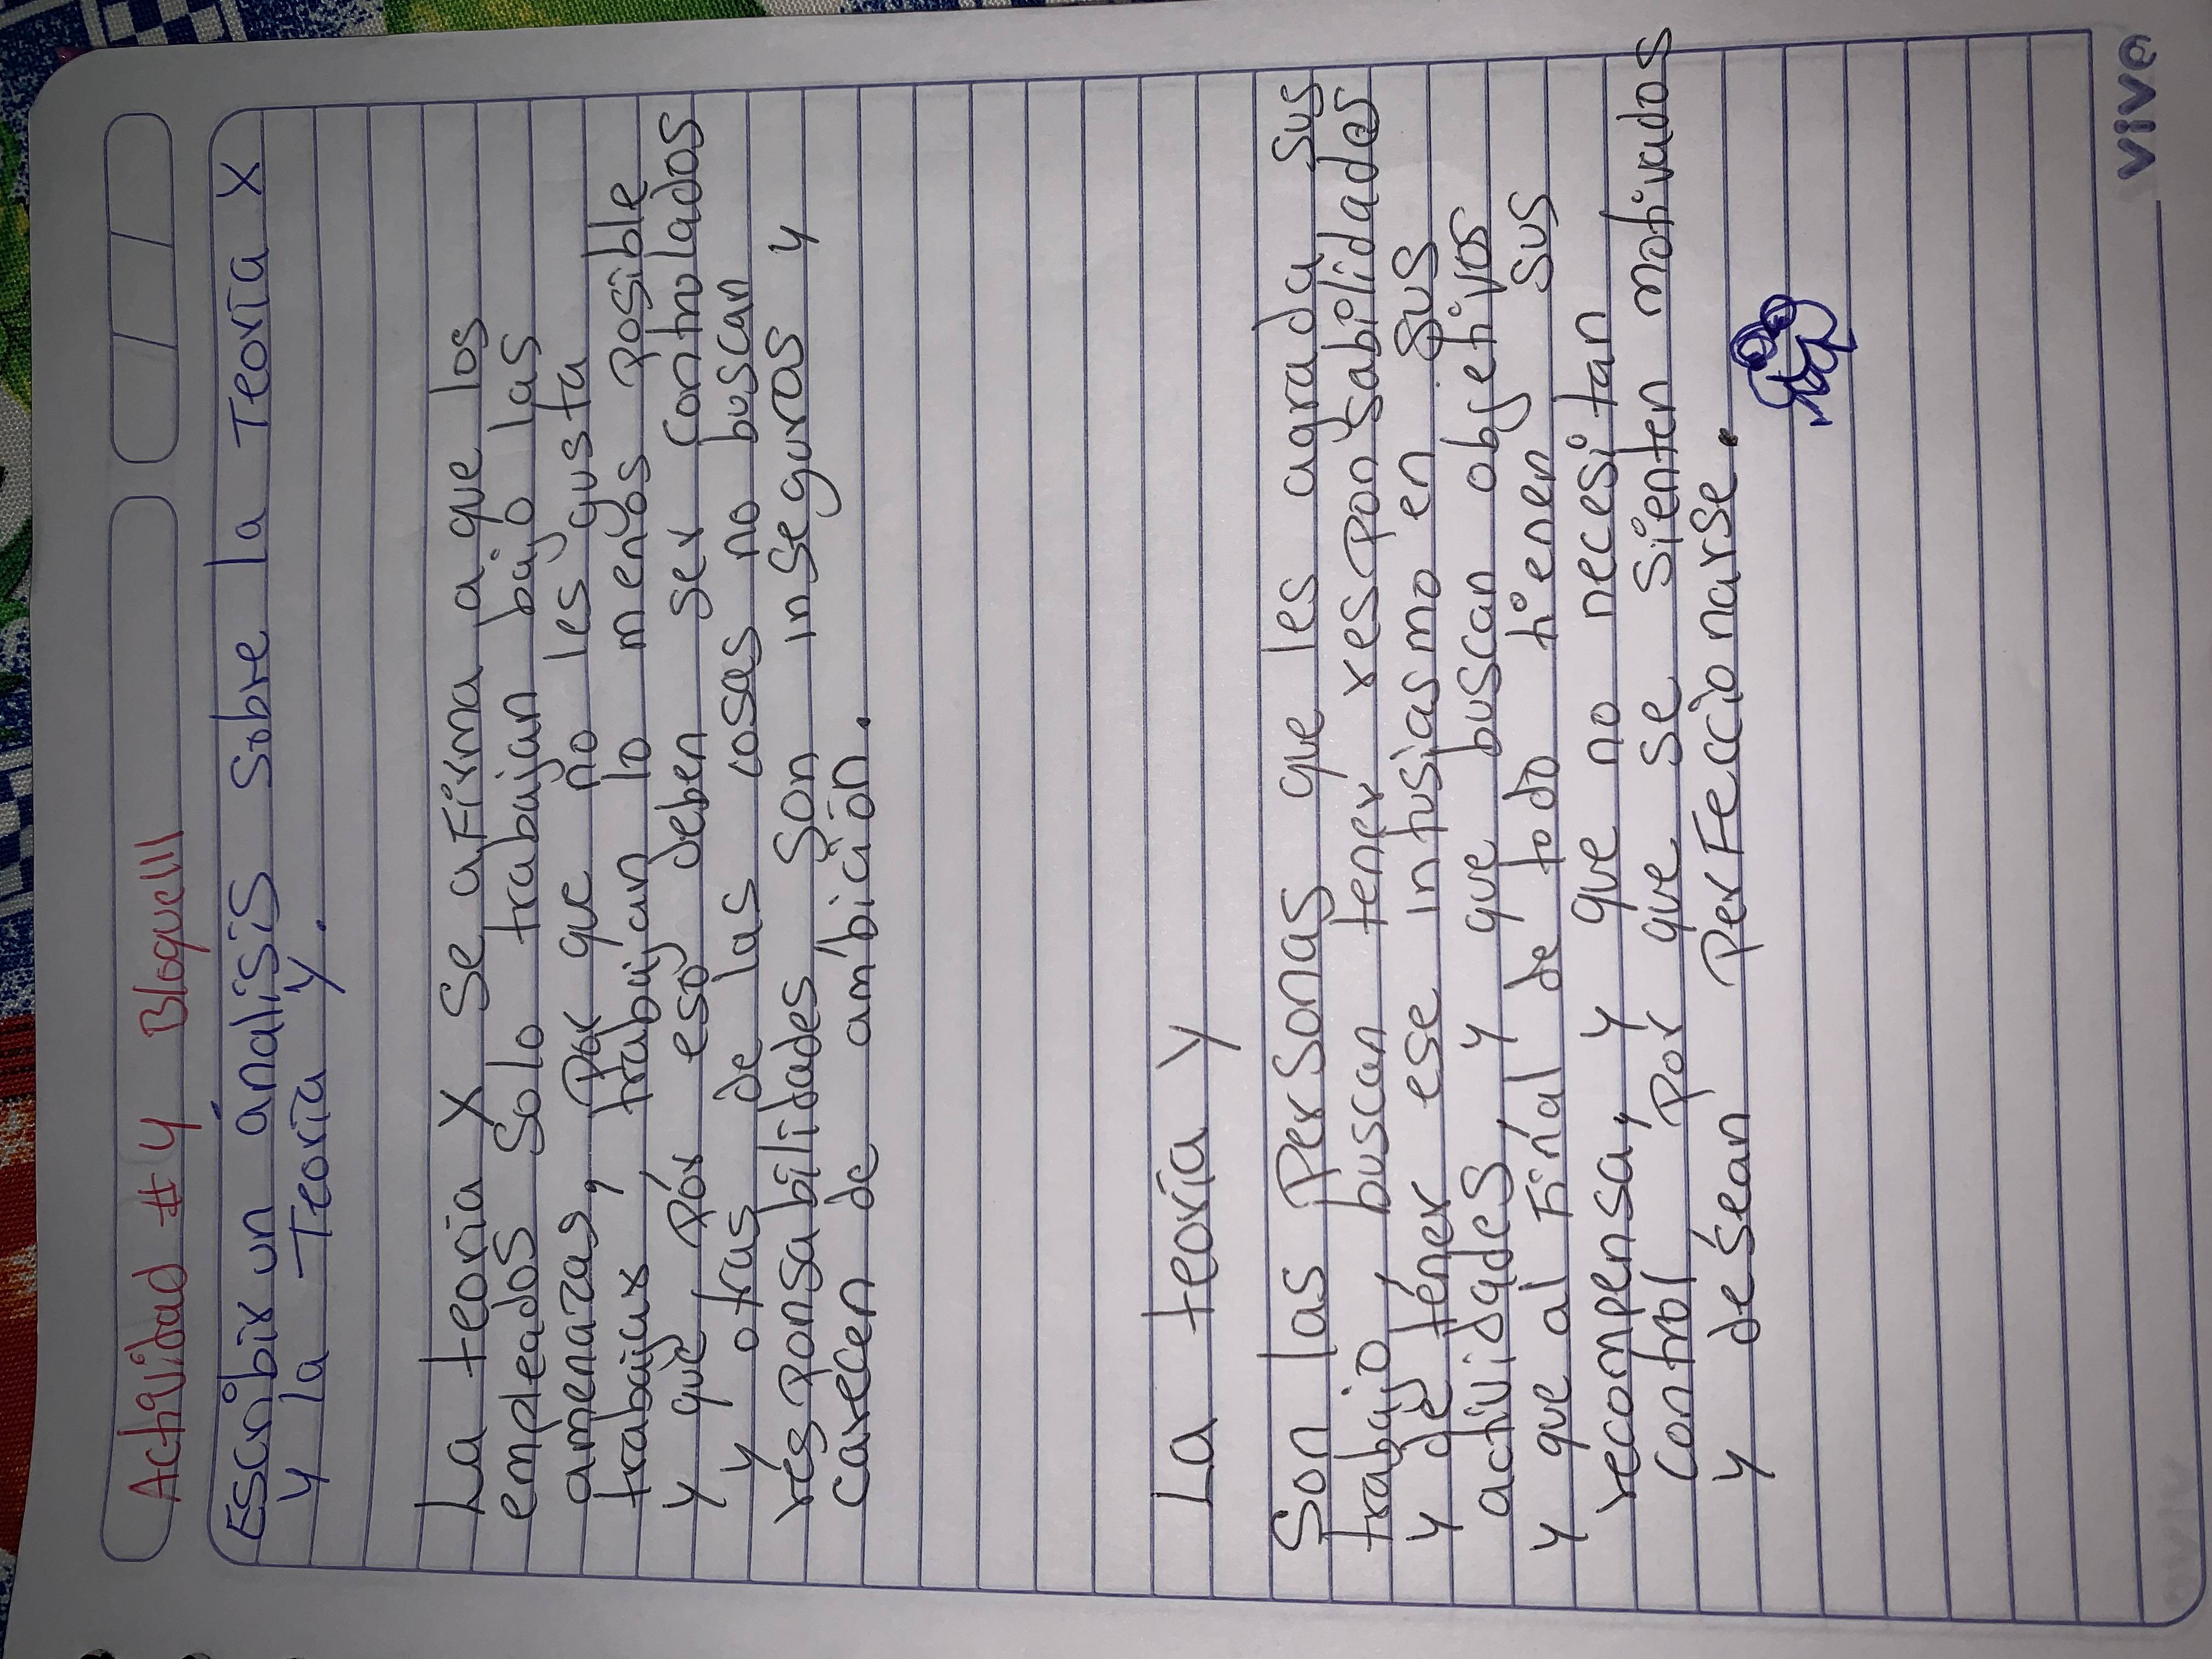 Actividad #4 Bloque III
Escribir un ánalisis sobre la Teoría X
y la Teoría y.
La teoria X se afirma a que los
empleados solo trabajan bajo las
amenazas, por que no les gusta
trabajar, trabajan lo menos posible
y que por eso deben ser controlados
y otras de las cosas no buscan
responsabilidades son inseguras y
carecen de ambición.
La teoría y
Son las personas que les agrada sus
trabajo, buscan tener responsabilidades
y de tener ese intusiasmo en sus
actividades, y que buscan objetivos
y que al final de todo tienen sus
recompensa, y que no necesitan
control por que se sienten motivados
y desean perfeccionarse.
viva